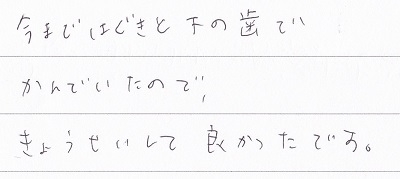 今まではぐきと下の歯で
かんでいたので、
きょうせいして良かったです。